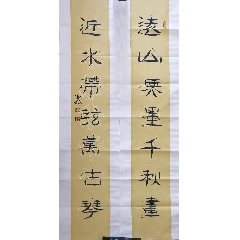 遠山泼墨千秋畫
近水帶弦萬古琴